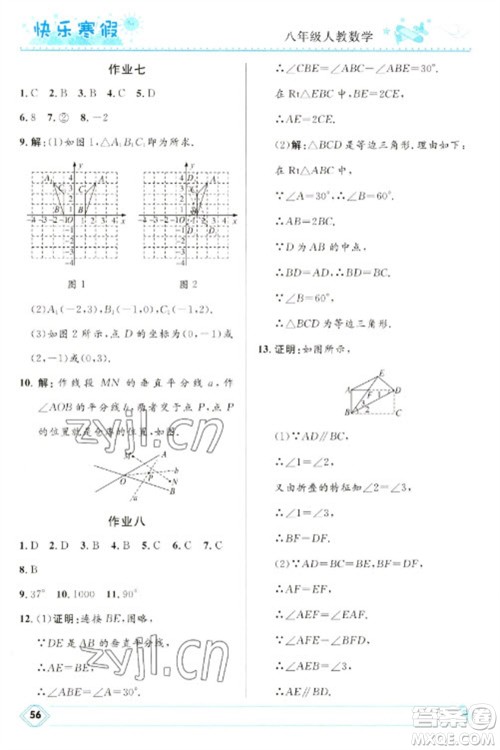 快乐寒假
八年级人教数学
作业七
1. C 2. B 3. C 4. D 5. C
6. 8 7. ② 8. －2
9. 解:(1)如图 1,△A₁B₁C₁ 即为所求.
图 1 图 2
(2)A₁(－2,3),B₁(－1,0),C₁(－2,0).
(3)如图 2 所示,点 D(－1,0)或(0,－2)
或(0,3).
10. 解:作线段 MN 的垂直平分线 a,作
∠AOB 的平分线 b,两者交于点 P,点 P
的位置就是仓库的位置,如图.
作业八
1. D 2. D 3. D 4. A 5. B 6. C 7. C
8. B
9. 37° 10. 1000 11. 90°
12. (1)证明:连接 BE,图略,
∵DE 是 AB 的垂直平分线,
∴AE=BE.
∴∠ABE=∠A=30°.
∴∠CBE=∠ABC－∠ABE=30°.
在 Rt△BCE 中,
∴BE=2CE.
∴AE=2CE.
(2)解:△BCD 是等边三角形,理由如下:
在 Rt△ABC 中,
∵∠A=30°,
∴∠B=60°.
∴AB=2BC.
∵D 为 AB 的中点,
∴BC=BD.
∵∠B=60°,
∴△BCD 是等边三角形.
13. 证明:如图所示,
(1)∵AD∥BC,
∴∠1=∠2.
又由折叠的特征知∠2=∠3,
∴∠1=∠3.
∴BF=DF.
(2)∵AD=BC=BE,BF=DF,
∴AF=EF.
∴∠AEB=∠EAF.
∵∠AFE=∠BFD,
∴∠AEF=∠1.
∴AE∥BD.
56
zyjl.cn